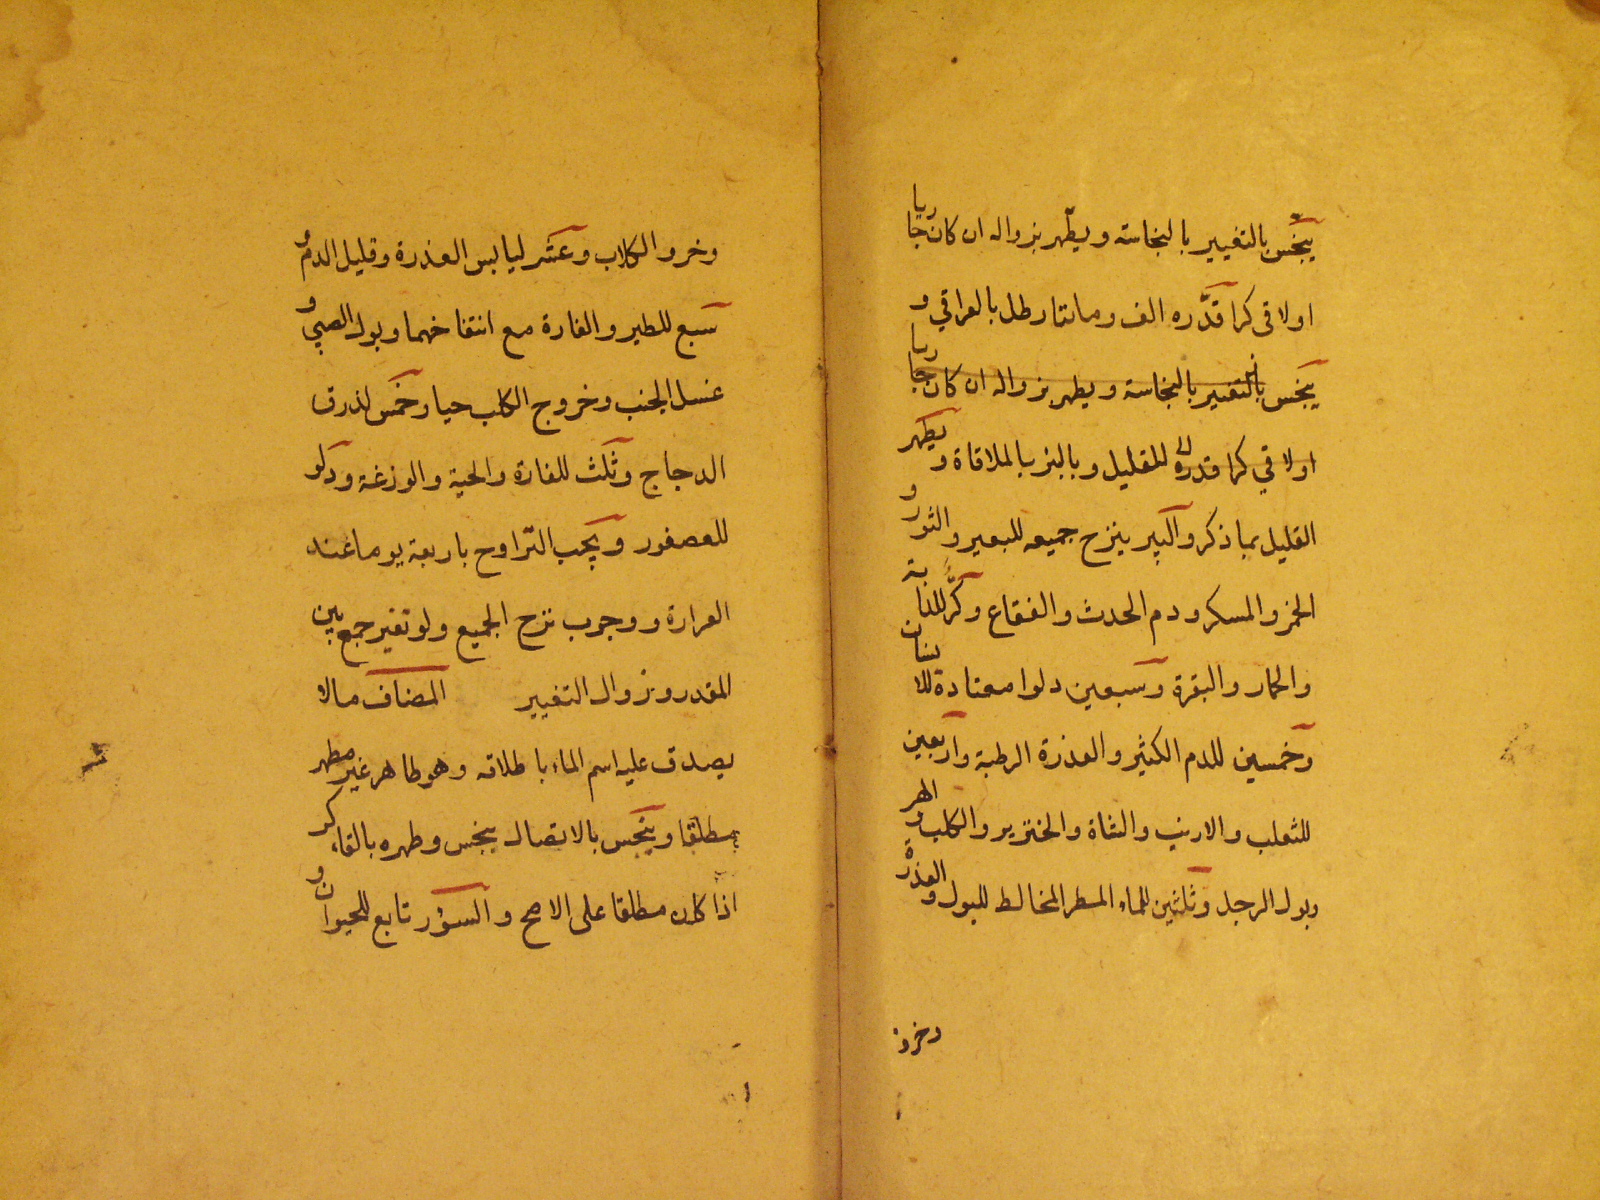 ينجس بالتغيير بالنجاسة ويطهر بزواله ان كان جاريا
او لاقى كرا قدره الف ومائتا رطل بالعراقي و
ينجس بالتغيير بالنجاسة ويطهر بزواله ان كان جاريا
او لاقى كرا قدره للقليل وبالبئر بالملاقاة ويطهر
القليل بما ذكر والبير ينزح جميعه للبعير والثور و
الخمر والمسكر ودم الحدث والفقاع وكر للدابة
والحمار والبقرة وسبعين دلوا معتادة للانسان
وخمسين للدم الكثير والعذرة الرطبة واربعين
للثعلب والارنب والشاة والخنزير والكلب والهر
وبول الرجل وثلثين للماء المطر المخالط للبول والعذرة
وخرو
وخرو الكلاب وعشر ليابس العذرة وقليل الدم و
سبع للطير والفارة مع انتفاخهما وبول الصبي و
غسل الجنب وخروج الكلب حيا وخمس لذرق
الدجاج وثلث للفارة والحية والوزغة ودلو
للعصفور ويجب التراوح باربعة يوما عند
الغرارة ووجوب نزح الجميع ولو تغير جمع بين
المقدر وزوال التغيير المضاف ما لا
يصدق عليه اسم الماء باطلاقه وهو طاهر غير مطهر
مطلقا وينجس بالاتصال بنجس وطهره بالقاء كر
اذا كان مطلقا على الاصح والسؤر تابع للحيوان و